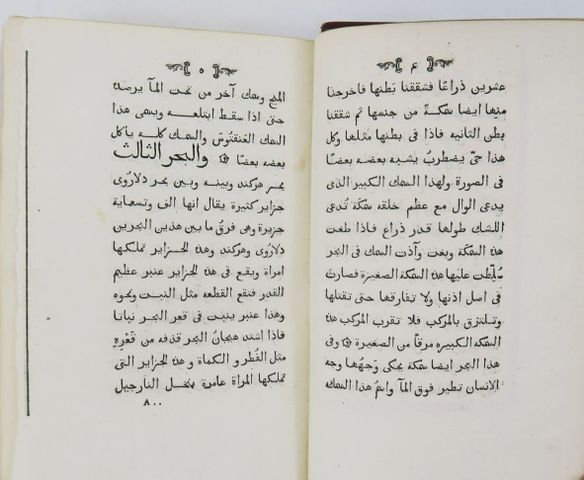 ٤
عشرين ذراعًا فشققنا بَطنها فاخرجنا
منها ايضا سمكةً من جنسها ثم شققنا
بطن الثانيه فاذا فى بطنها مثلها وكل
هذا حىّ يضطربُ يشبه بعضه بعضًا
فى الصورة ولهذا السمك الكبير الذى
يدعى الوال مع عظم خلقه سمَكة تُدعى
اللشك طولها قدر ذراع فاذا طغت
هذه السمَكة وبغت وآذت السمك فى البحر
سُلِّطت عليها هذه السمكة الصغيرة فصارت
فى اصل اذنها ولا تفارقها حتى تقتلها
وتلتزق بالمركب فلا تقرب المركب هذه
السمكة الكبيره فرقاً من الصغيرة ۞ وفى
هذا البحر ايضا سمكة يحكى وَجهُها وجه
الانسان تطير فوق المآ واسمُ هذا السمك
٥
الميج وسمك آخر من تحت المآ يرصده
حتى اذا سقط ابتلعه ويسمى هذا
السمك العَنقتُوسَ والسمك كله ياكل
بعضه بعضًا ۞ والبحر الثالث
بحر هركند وبينه وبين بحر دلاروَى
جزاير كثيرة يقال انها الف وتسعماية
جزيرة وهى فرقُ ما بين هذين البحرين
دلاروَى وهركند وهذه الجزاير تملكها
امراة ويقع فى هذه الجزاير عنبر عظيم
القدر فتقع القطعه مثل النبت ونحوه
وهذا عنبر ينبت فى قعر البحر نباتا
فاذا اشتد هيجان البحر قذفه من قَعْرِه
مثل الفُطر و الكماة و هذه الجزاير التى
تملكها المراة عامرة بنخل النارجيل
٨٠٠